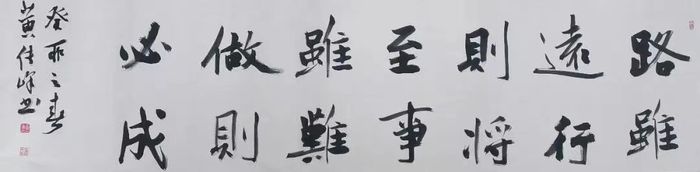 路雖
遠行
則將
至事
雖難
做則
必成
癸卯之春
黄峰书